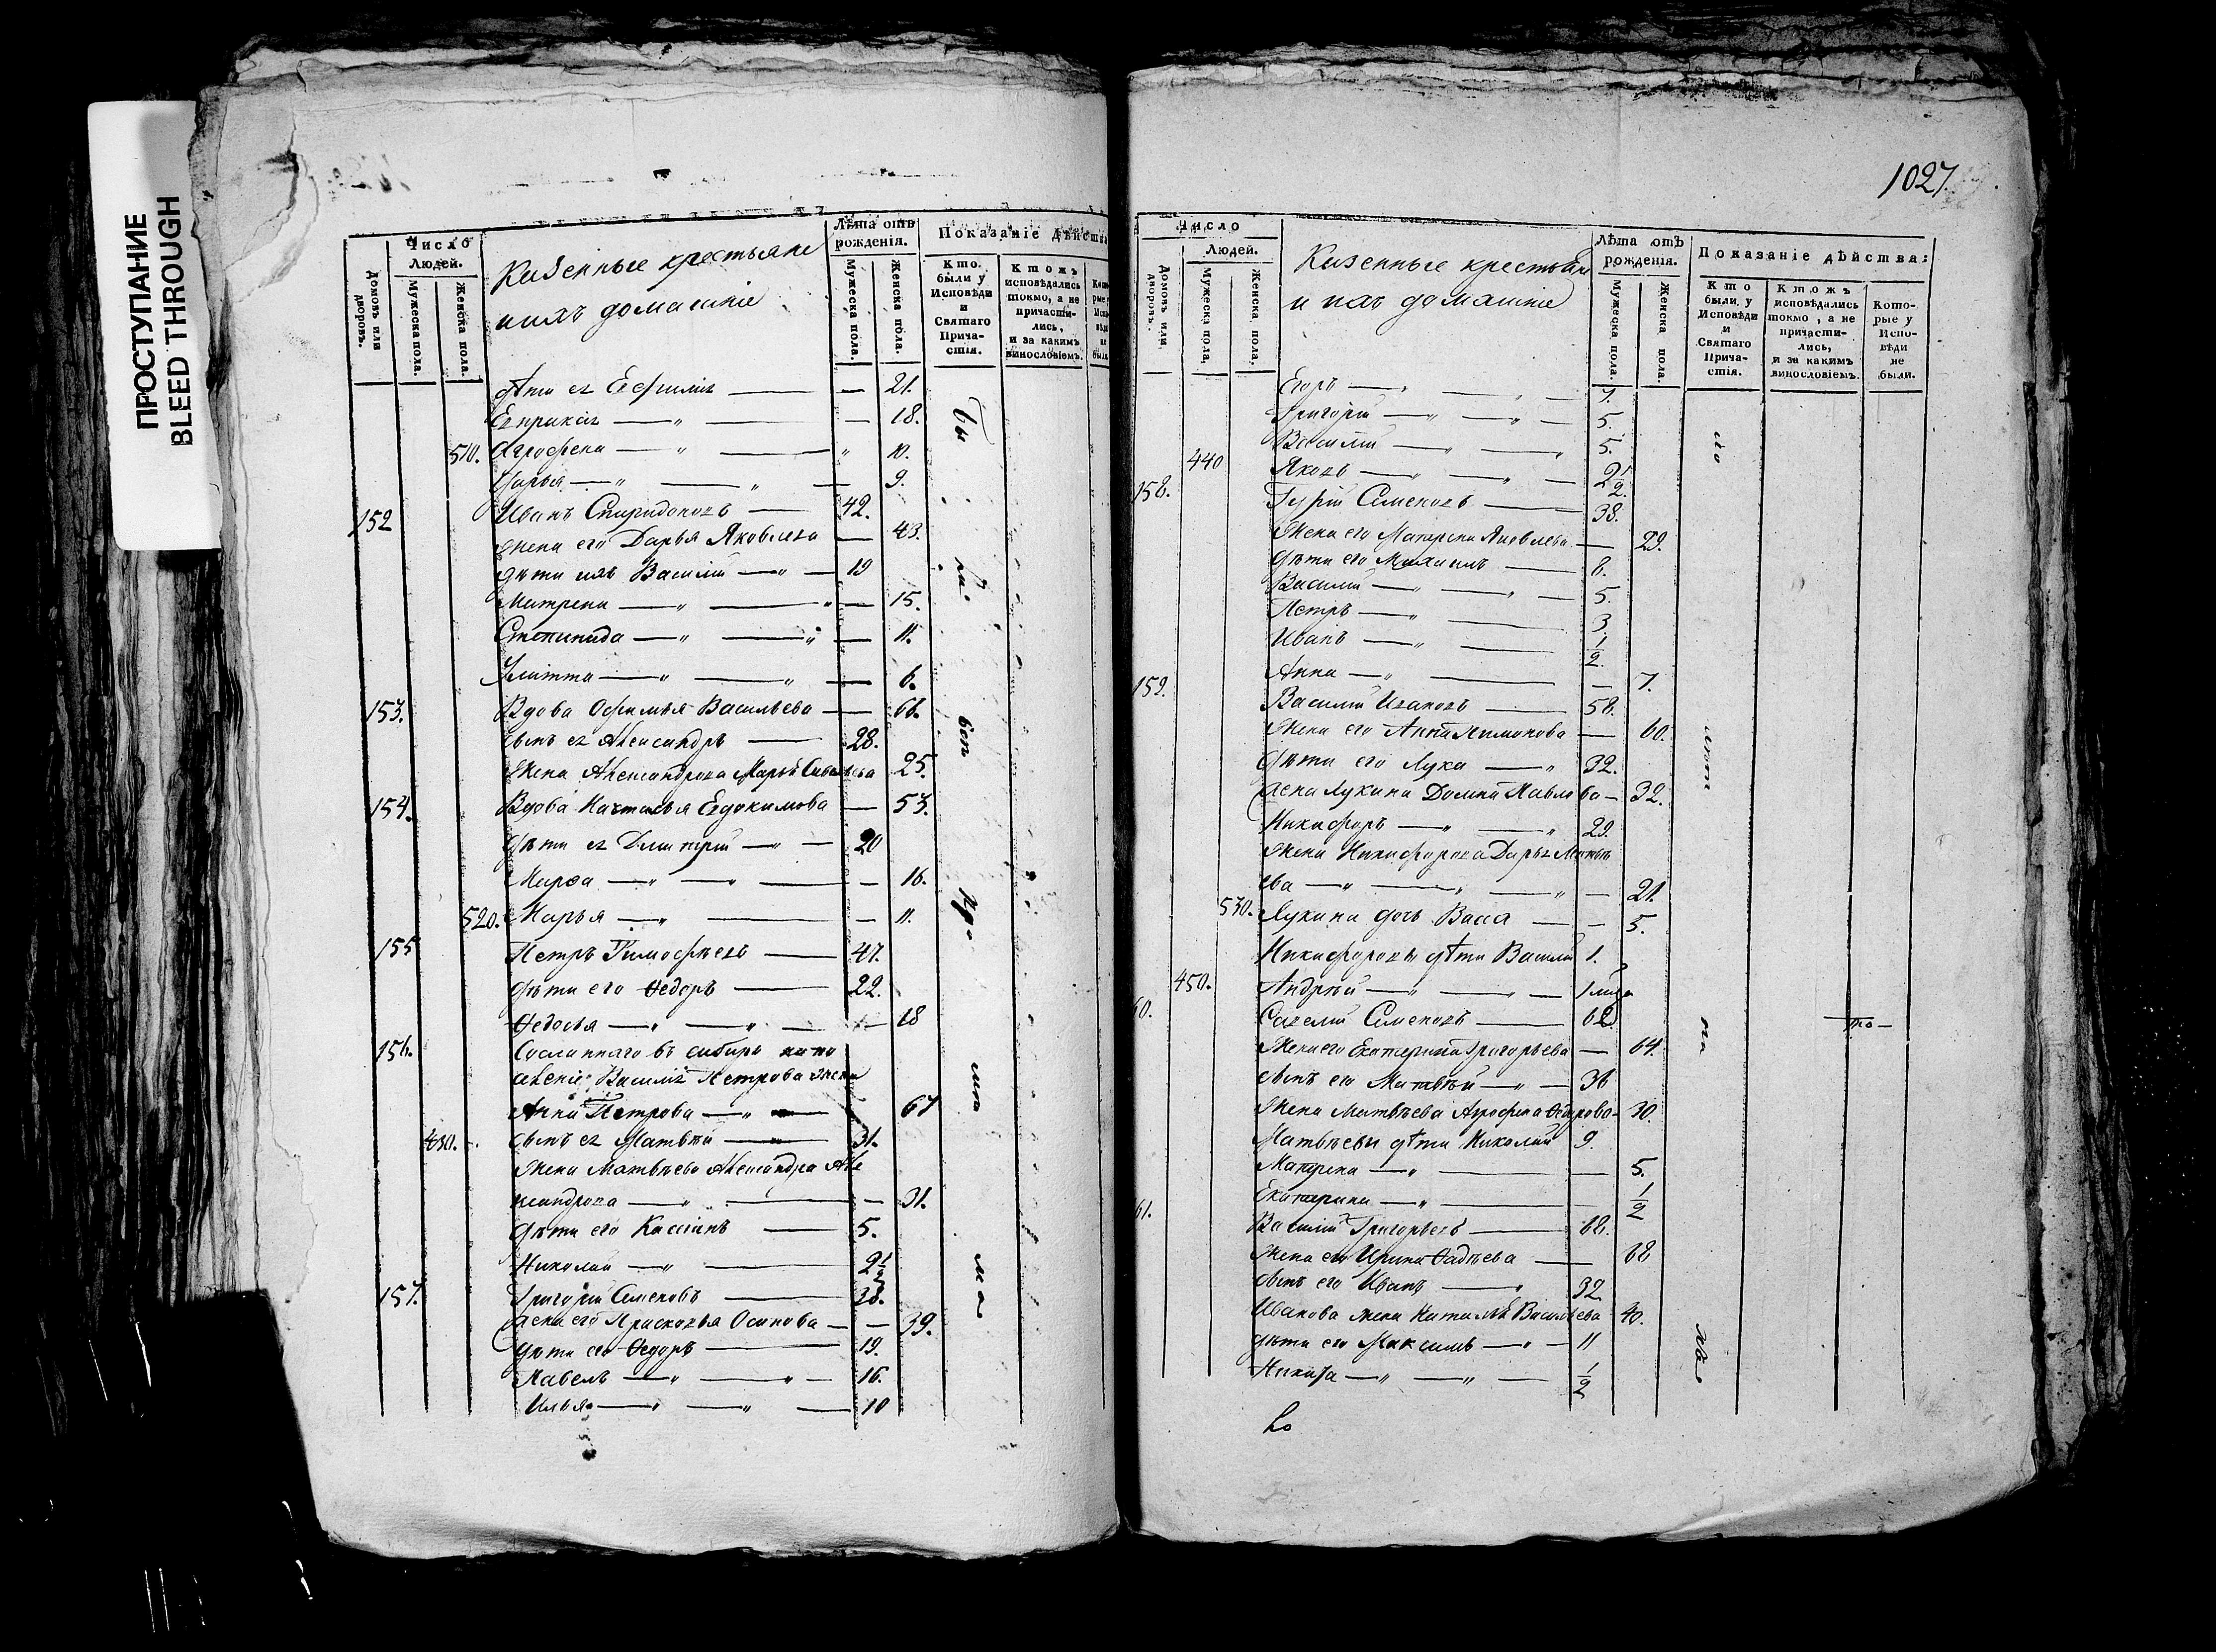 ПРОСТУПАНИЕ
BLEED THROUGH
Число
Людей.
Домовъ или дворовъ.
Мужеска пола.
Женска пола.
Казенные крестьяне
и ихъ домашніе
Лѣта отъ рожденія.
Мужеска пола.
Женска пола.
Показаніе дѣйства
Кто были у Исповѣди и Святаго Причастія.
Ктожъ исповѣдались токмо, а не причастились, и за какимъ винословіемъ.
дѣти ея Ефимія — 21.
Евпраксія — 18.
510. Агрофена — 10.
Дарья — 9.
152 Иванъ Спиридоновъ — 42.
Жена его Дарья Яковлева — 43.
дѣти ихъ Василій — 19
Матрена — 15.
Степанида — 11.
Улитта — 6.
153. Вдова Офимья Васильева — 66.
сынъ ея Александръ — 28.
Жена Александрова Марья Савельева 25.
154. Вдова Настасья Евдокимова — 53.
дѣти ея Дмитрій — 20
Марѳа — 16.
520. Марья — 11.
155 Петръ Тимофѣевъ — 47.
дѣти его Ѳедоръ — 22.
Ѳедосья — 18
156. Сосланнаго въ сибирь на по
селеніе Василія Петрова жена
Анна Петрова — 67
430. сынъ ея Матвѣй — 31.
Жена Матвѣева Александра Але
ксандрова — 31.
дѣти его Кассіанъ — 5.
Николай — 2 1/2
157. Григорій Семеновъ — 38.
Жена его Прасковья Осипова — 39.
дѣти его Ѳедоръ — 19.
Павелъ — 16.
Илья — 10
1027.
Число
Людей.
Домовъ или дворовъ.
Мужеска пола.
Женска пола.
Казенные крестьяне
и ихъ домашніе
Лѣта отъ рожденія.
Мужеска пола.
Женска пола.
Показаніе дѣйства:
Кто были у Исповѣди и Святаго Причастія.
Ктожъ исповѣдались токмо, а не причастились, и за какимъ винословіемъ.
Которые у Исповѣди не были.
Егоръ — 7.
Григорій — 5.
Василій — 5.
440 Яковъ — 2 1/2.
158. Гурій Семеновъ — 38.
Жена его Катерина Яковлева — 29.
дѣти его Михаилъ — 8.
Василій — 5.
Петръ — 3
Иванъ — 1/2.
Анна — 7.
159. Василій Ивановъ — 58.
Жена его Анна Пимонова — 60.
дѣти его Лука — 32.
жена Лукина Домна Павлова — 32.
Никифоръ — 29.
Жена Никифорова Дарья
ева — 21.
530. Лукина дочь Васса — 5.
Никифоровы дѣти Василій 1.
450. Андрѣй — 1
60. Савелій Семеновъ — 62
Жена его Екатерина Григорьева — 64.
сынъ его Матвѣй — 36
Жена Матвѣева Агрофена Ѳедорова 30.
Матвѣевы дѣти Николай 9.
Матрена — 5.
Екатерина — 1/2
61. Василій Григорьевъ — 68.
Жена его Ирина Фадѣева — 68
сынъ его Иванъ — 32
Иванова жена Наталья Васильева 40.
дѣти его Максимъ — 11
Никита — 1/2